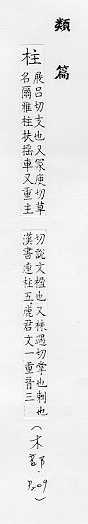 類篇
柱
展呂切支也又冢庾切草
名爾雅柱扶搖車又重主
切說文楹也又株遇切掌也刺也
漢書連柱五鹿君文一重音三
(木部·p.209)